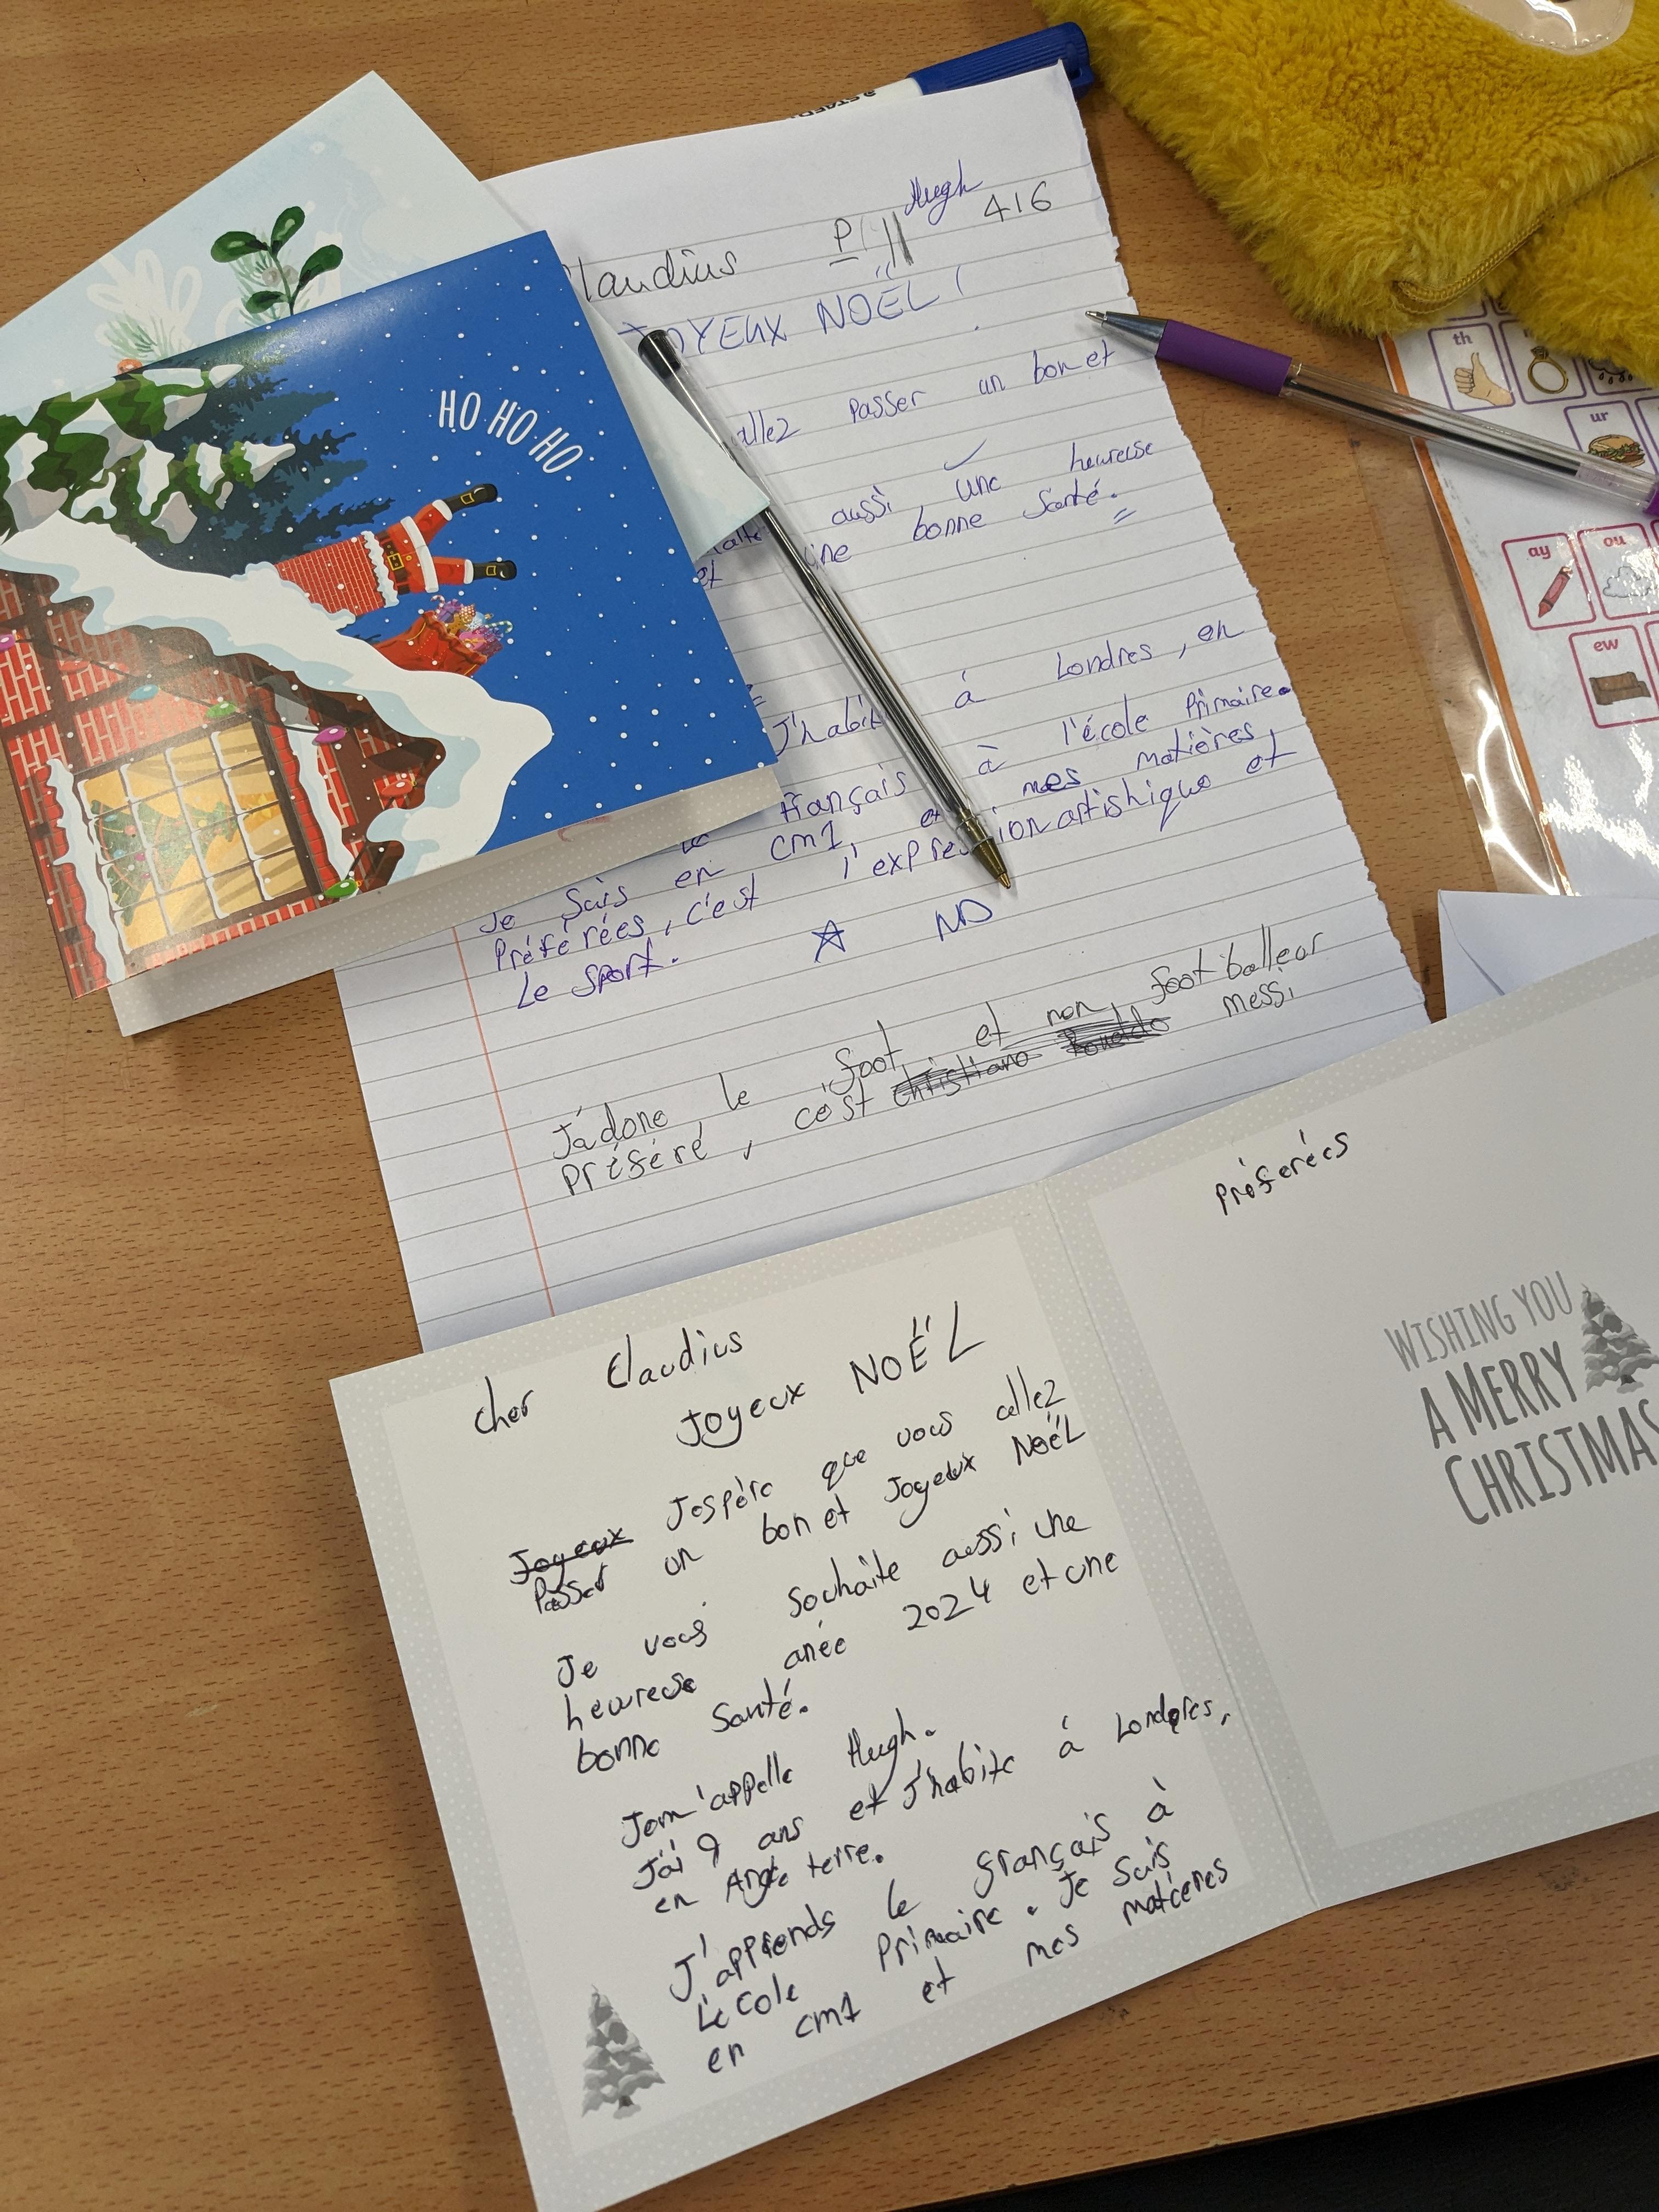 STAED
Hugh
Claudius P 416
JOYEUX NOËL !
allez passer un bon et
aussi une heureuse
et une bonne Santé.
J'habite à Londres, en
le français à l'école Primaire.
Je Suis en cm1, et mes matières
Préférées, c'est l'expression artistique et
Le Sport.
ND
J'adone le foot et non footballeur
préféré, c'est christiano Ronaldo messi
HO HO HO
th
ur
ay ou
ew
cher Claudius
Joyeux NOËL
Joyeux Jespère que vous allez
Passer un bon et Joyeux NoëL
Je vous Souhaite aussi une
heureuse anée 2024 et une
bonne Santé.
Jem'appelle Hugh.
J'ai 9 ans et J'habite à Londres,
en Angleterre.
J'apprends le français à
L'école Primaire. Je Suis
en cm1 et mes matieres
Préferées
WISHING YOU
A MERRY
CHRISTMAS